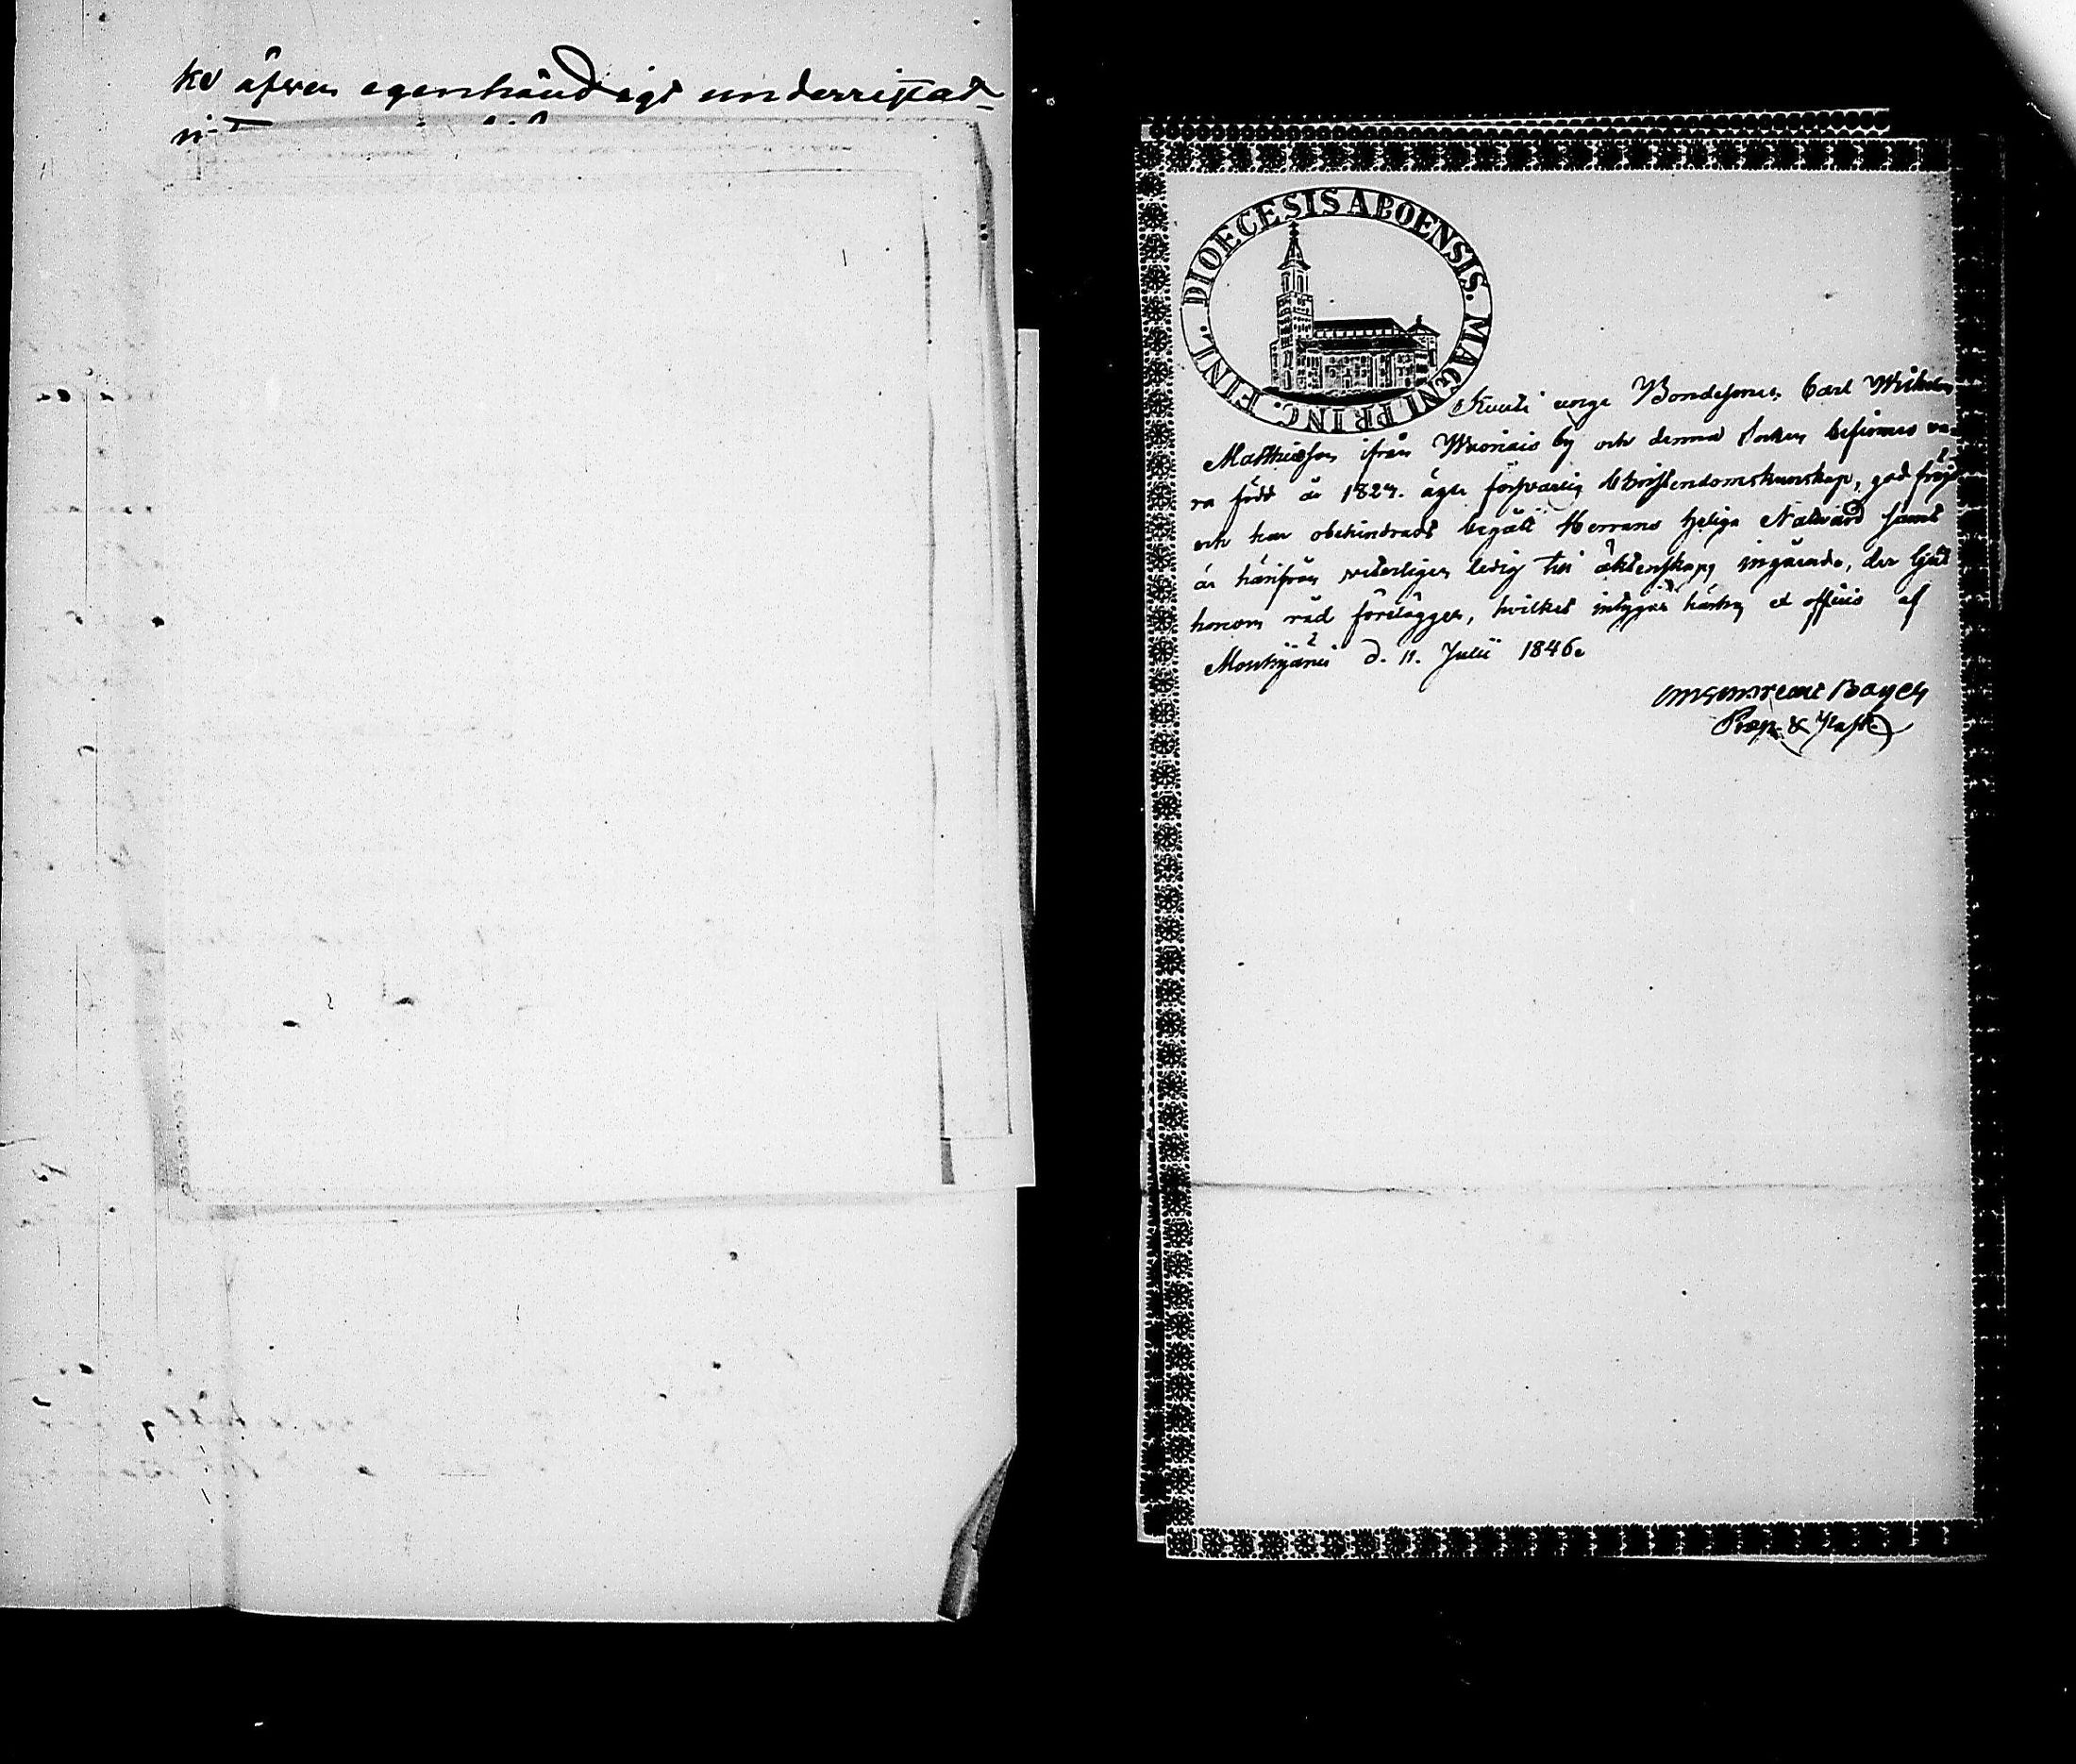 ke äfven egenhändigt underritat
DIOECESIS ABOENSIS. MAGNI PRINC. FINL.
unge Bondesonen Carl Wilhelm
Matthiesson ifrån by och denna Socken befinnes va-
ra född år 1824. äger försvarlig Christendomskunskap, god frejd
och har obehindradt begått Herrans heliga Nattvard samt
är härifrån veterligen ledig till äktenskaps ingående, der Gud
honom råd förelägger, hvilket intygas härhos ex officio af
Mouhijärvi d. 11. Julii 1846.
Præp. & Past.